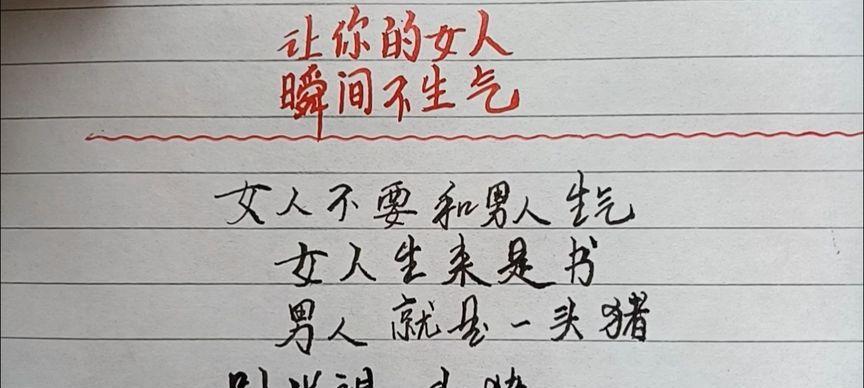 让你的女人
瞬间不生气
女人不要和男人生气
女人生来是书
男人就是一头猪